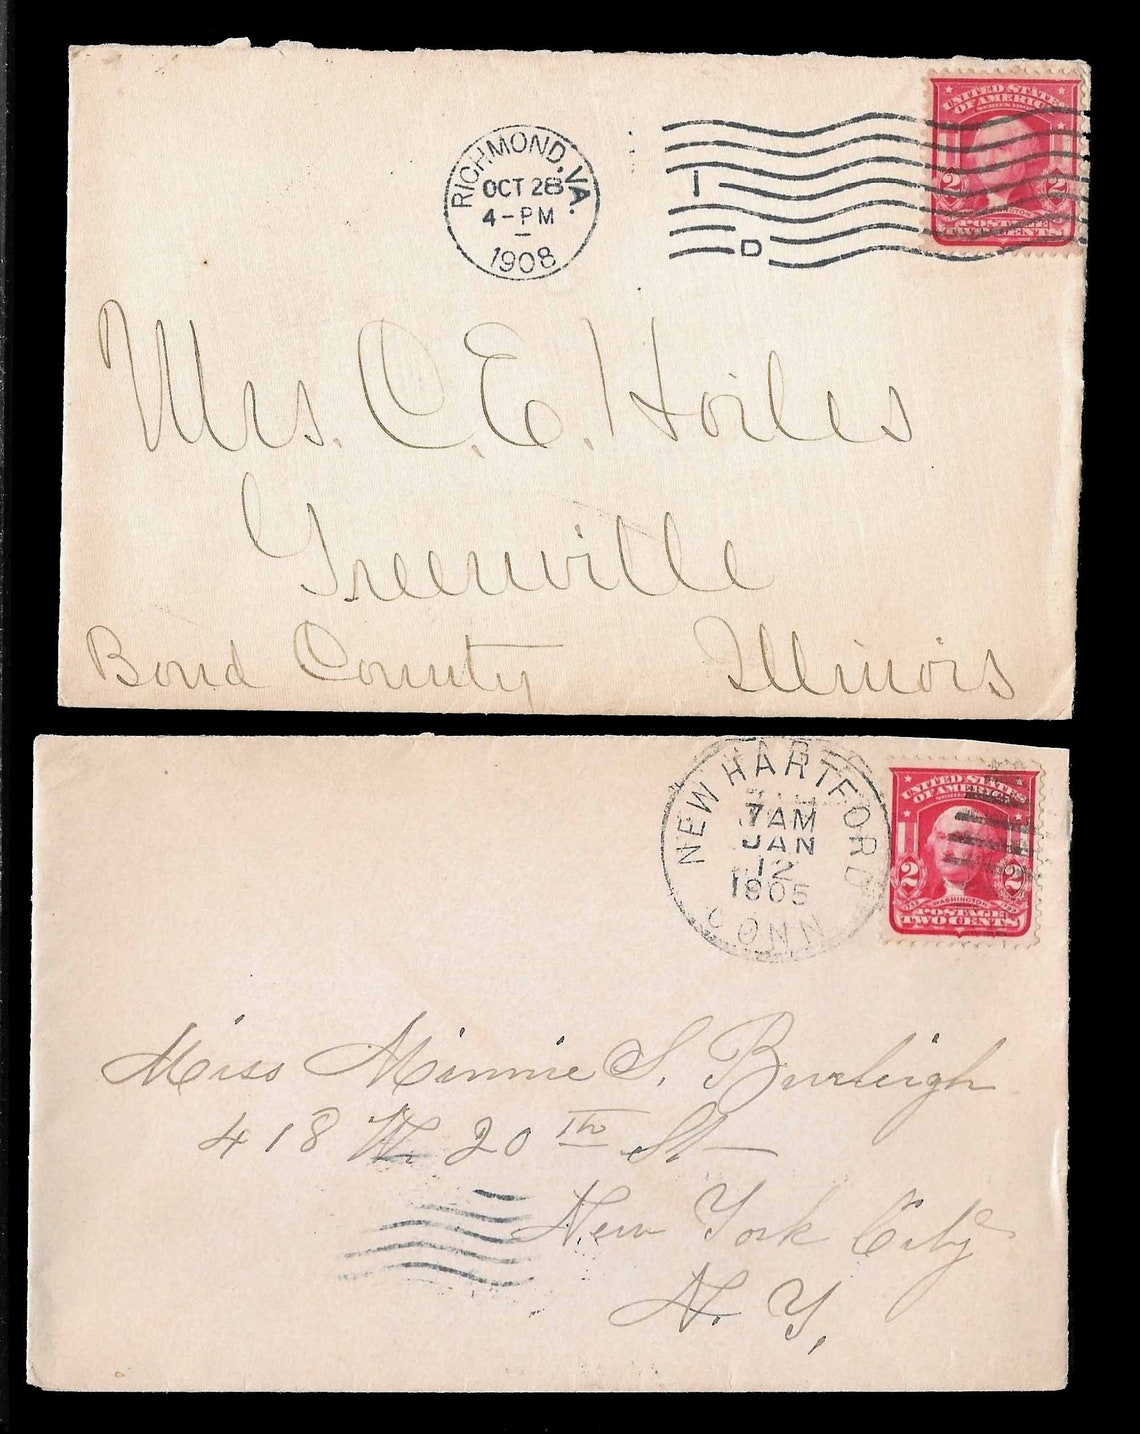 RICHMOND, VA.
OCT 28
4-PM
1908
1
D
UNITED STATES
OF AMERICA
2 2
POSTAGE
TWO CENTS
Mrs. C. E. Hoiles
Greenville
Bond County Illinois
NEW HARTFORD
7 AM
JAN
12
1905
CONN
UNITED STATES
OF AMERICA
2 2
WASHINGTON
POSTAGE
TWO CENTS
Miss Minnie S. Burleigh
418 W. 20th St
New York City
N. Y.